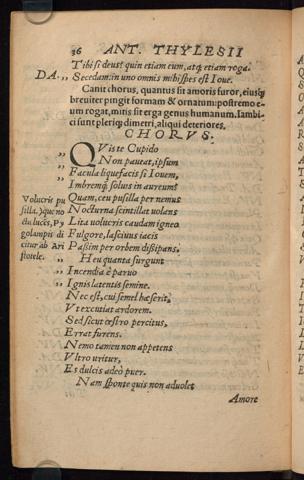 36 ANT. THYLESII
Tibi si deust quin etiam eum, atq; etiam roga.
DA. ,, Secedam: in uno omnis mihi spes est Ioue.
Canit chorus, quantus sit amoris furor, eiusq;
breuiter pingit formam & ornatum: postremo e-
um rogat, mitis sit erga genus humanum. Iambi-
ci sunt pleriq; dimetri, aliqui deteriores.
CHORVS.
QVis te Cupido
,, Non paueat, ipsum
,, Facula liquefacis si Iouem,
,, Imbremq; solus in aureum?
Volucris pu Quam, ceu pusilla per nemus
silla, q̃ue no Nocturna scintillat uolans
ctu luces, Py Lita uolucris caudam igneo
golampis di Fulgore, lasciuus iacis
citur ab Ari Passim per orbem dissipans.
stotele. ,, Heu quanta surgunt
,, Incendia è paruo
,, Ignis latentis semine.
,, Nec est, cui semel hæserit,
,, Vt excutiat ardorem.
,, Sed sicut œstro percitus,
,, Errat furens.
,, Nemo tamen non appetens
,, Vltro uritur,
,, Es dulcis adeò puer.
,, Nam sponte quis non aduolet
Amore